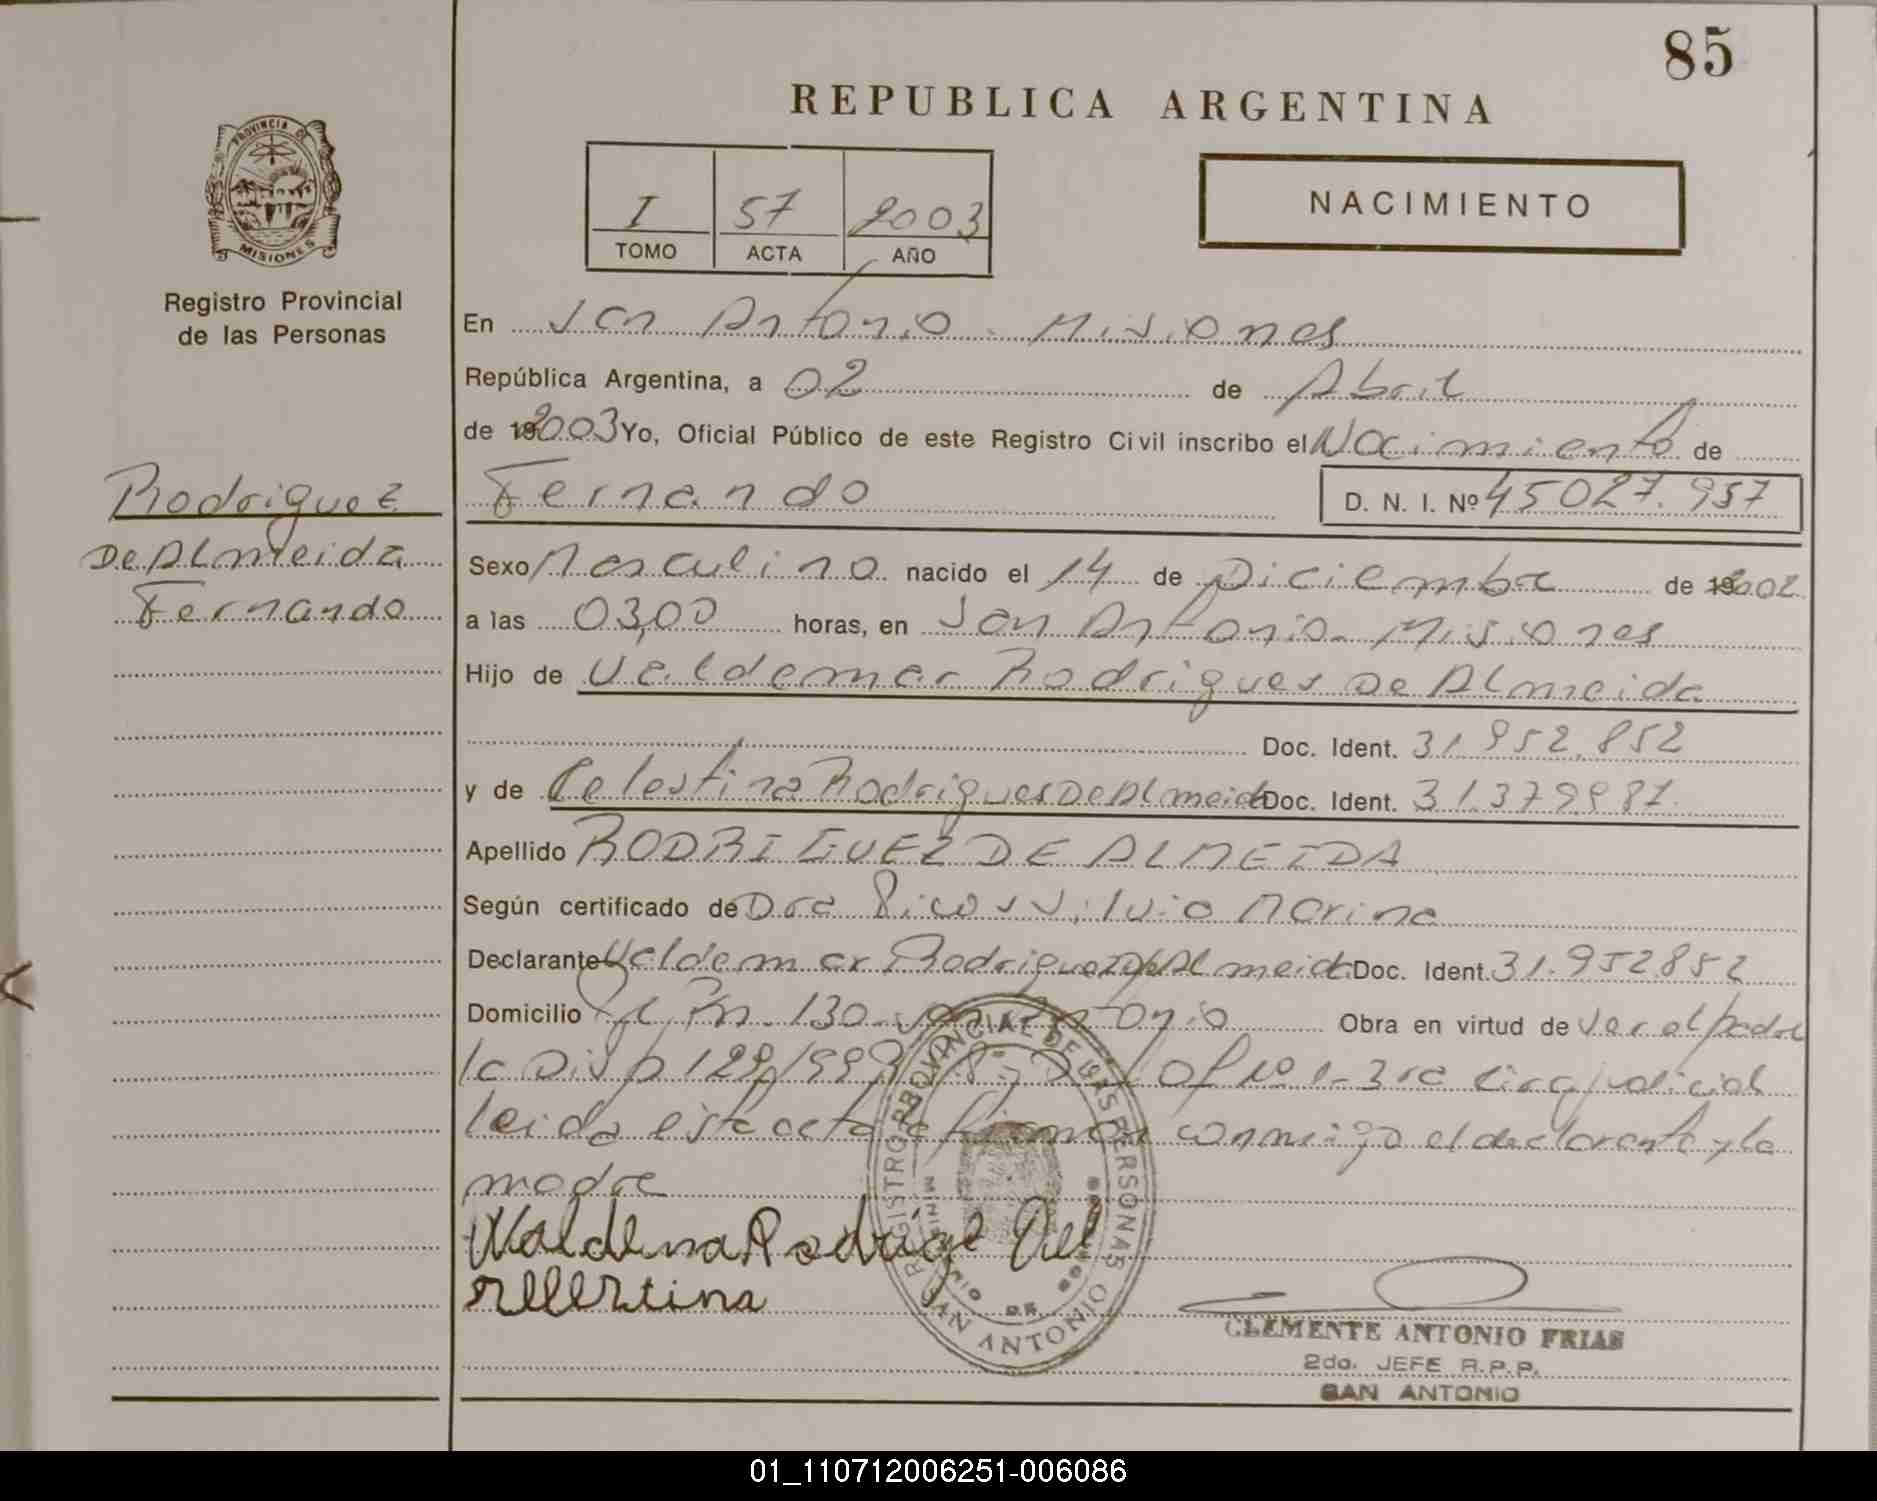 85
REPUBLICA ARGENTINA
PROVINCIA D
MISIONES
Registro Provincial
de las Personas
I 57 2003
TOMO ACTA AÑO
NACIMIENTO
En San Antonio - Misiones
República Argentina, a 02 de Abril
de 2003 Yo, Oficial Público de este Registro Civil inscribo el Nacimiento de
Rodriguez
De Almeida
Fernando
Fernando D. N. I. Nº 45027.957
Sexo Masculino nacido el 14 de Diciembre de 2002
a las 03,00 horas, en San Antonio - Misiones
Hijo de Valdemar Rodrigues De Almeida
Doc. Ident. 31.952.852
y de Celestina Rodrigues De Almeida Doc. Ident. 31.379.987
Apellido RODRIGUEZ DE ALMEIDA
Según certificado de Dra Silvia Marina
Declarante Valdemar Rodriguez De Almeida Doc. Ident. 31.952852
Domicilio Km. 130 San Antonio Obra en virtud de ser el padre
la Disp 129/999 of Nº 1 - 3ra Circ Judicial
leida esta acta firman conmigo el declarante y la
madre
REGISTRO PROVINCIAL DE LAS PERSONAS
SAN ANTONIO
CLEMENTE ANTONIO FRIAS
2do. JEFE R.P.P.
SAN ANTONIO
01_110712006251-006086